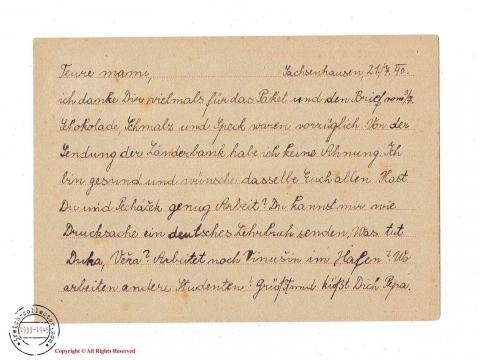 Teure mami, Sachsenhausen, 21/7. 40.
ich danke Dir vielmals für das Paket und den Brief vom 3/7.
Schokolade, Schmalz und Speck waren vorzüglich. Von der
Sendung der Länderbank habe ich keine Ahnung. Ich
bin gesund und wünsche dasselbe Euch allen. Hast
Du und Pecháček genug Arbeit? Du kannst mir wie
Drucksache ein deutsches Lehrbuch senden. Was tut
Duka, Věra? Arbeitet noch Vinušin im Hafen? Wo
arbeiten andere Studenten? Grüßt und küßt Dich Pepa.
1933-1945
Copyright © All Rights Reserved